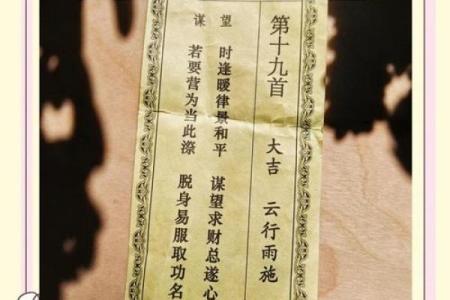 第十九首 大吉 云行雨施
望 时逢暖律景和平 谋望求财总遂心
谋 若要营为当此漈 脱身易服取功名